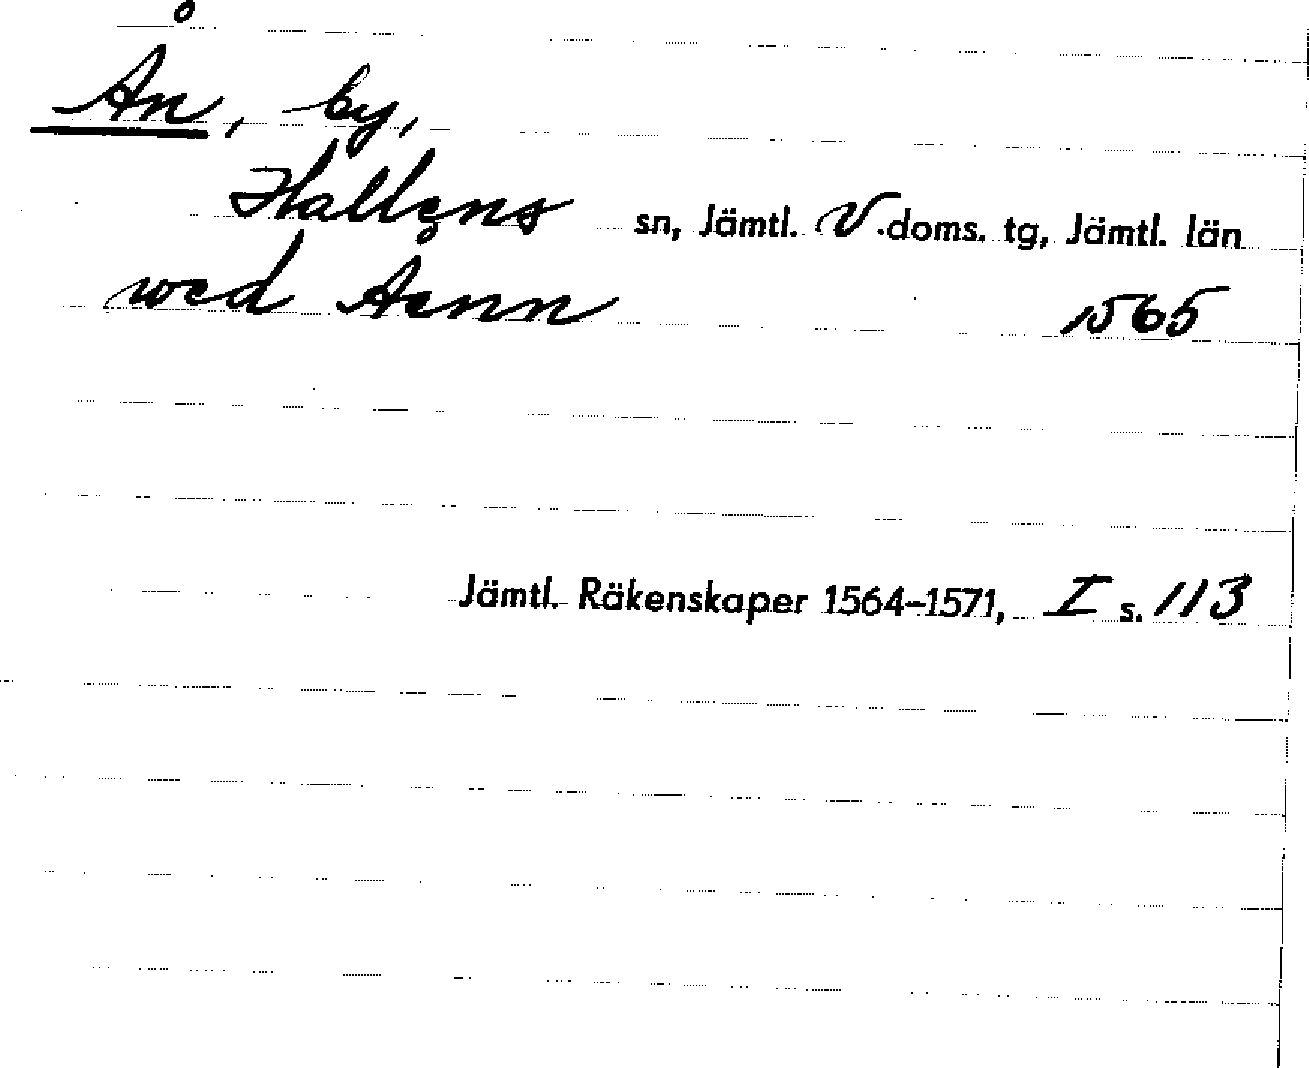 Ån, by,
Hallens sn, Jämtl. V.doms. tg, Jämtl. län
wed Aenn 1565
Jämtl. Räkenskaper 1564-1571, I s. 113